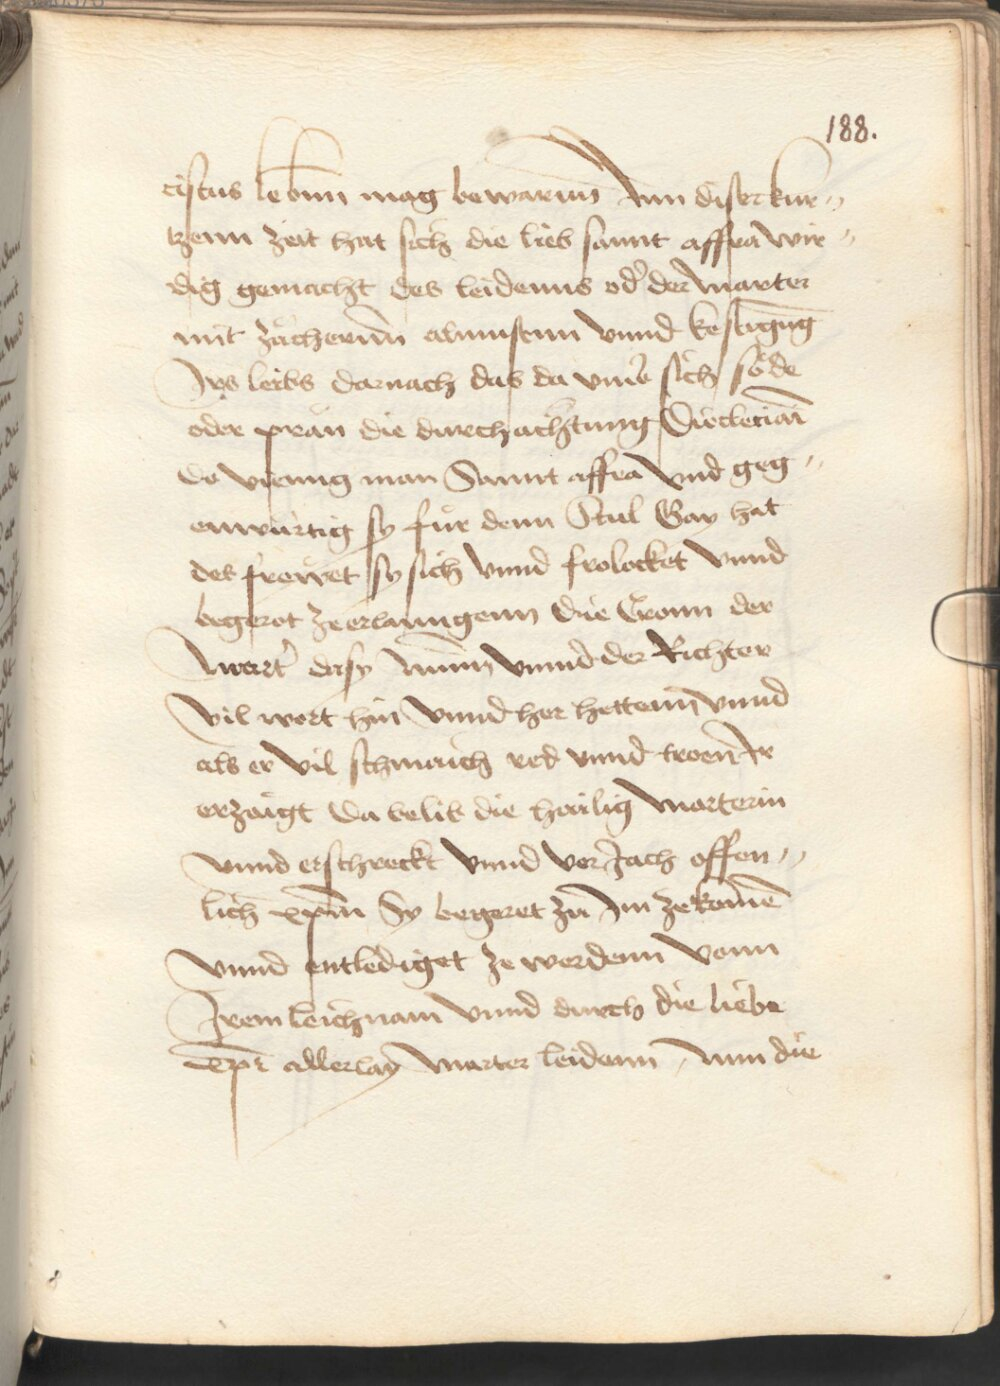 188.
cistus lebenn mag bewarenn Inn diser kur〃
tzenn zeit hat sich die lieb sannt affra wir〃
dig gemacht des leidenns od' der Marter
mit zächerenn almusenn vnnd kestigūg
Irs leibs darnach das da vmb sich
oder die durchachtung Diocleciani
do vieng man Sannt affra vnd geg〃
enwürtig sy für denn Stul Gay hat
des frewet sy sich vnnd frolocket vnnd
begerot ze erlanngenn die Cronn der
Mart' da sy Nunn vnnd der Richter
vil wort hin vnnd her hettenn vnnd
als er vil schmäch red vnnd troen Ir
erzaigt Da belib die hailig Marterin
vnnd erschreckt vnnd veriach offen〃
lich xp̄m Sy begeret zu Im ze komē
vnnd entlediget ze werdenn vonn
Irem leichnam vnnd durch die liebe
xp̄i allerlay Marter leidenn Nun die